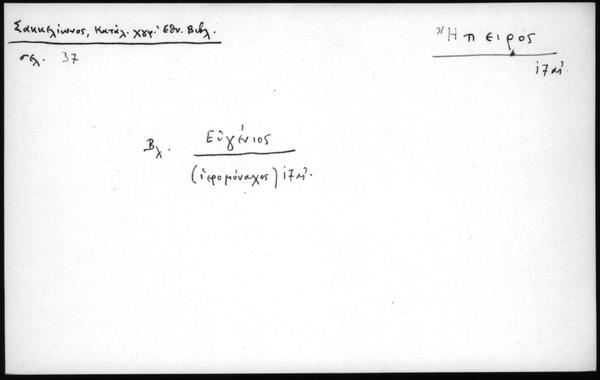 Σακκελίωνος, Κατάλ. χγρ. Ἐθν. Βιβλ.
σελ. 37
Ἤπειρος
17 αἰ.
Βλ. Εὐγένιος
(ἱερομόναχος) 17 αἰ.